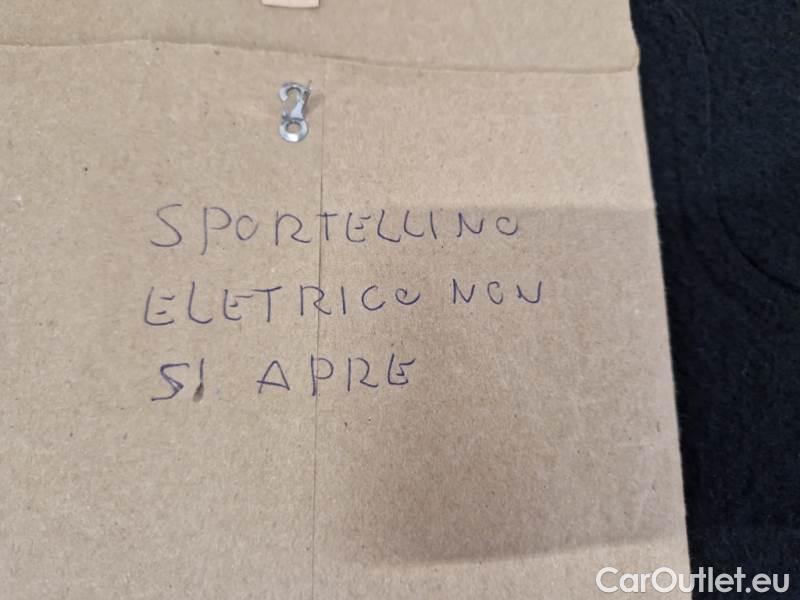 SPORTELLINO
ELETRICO NON
SI APRE
CarOutlet.eu